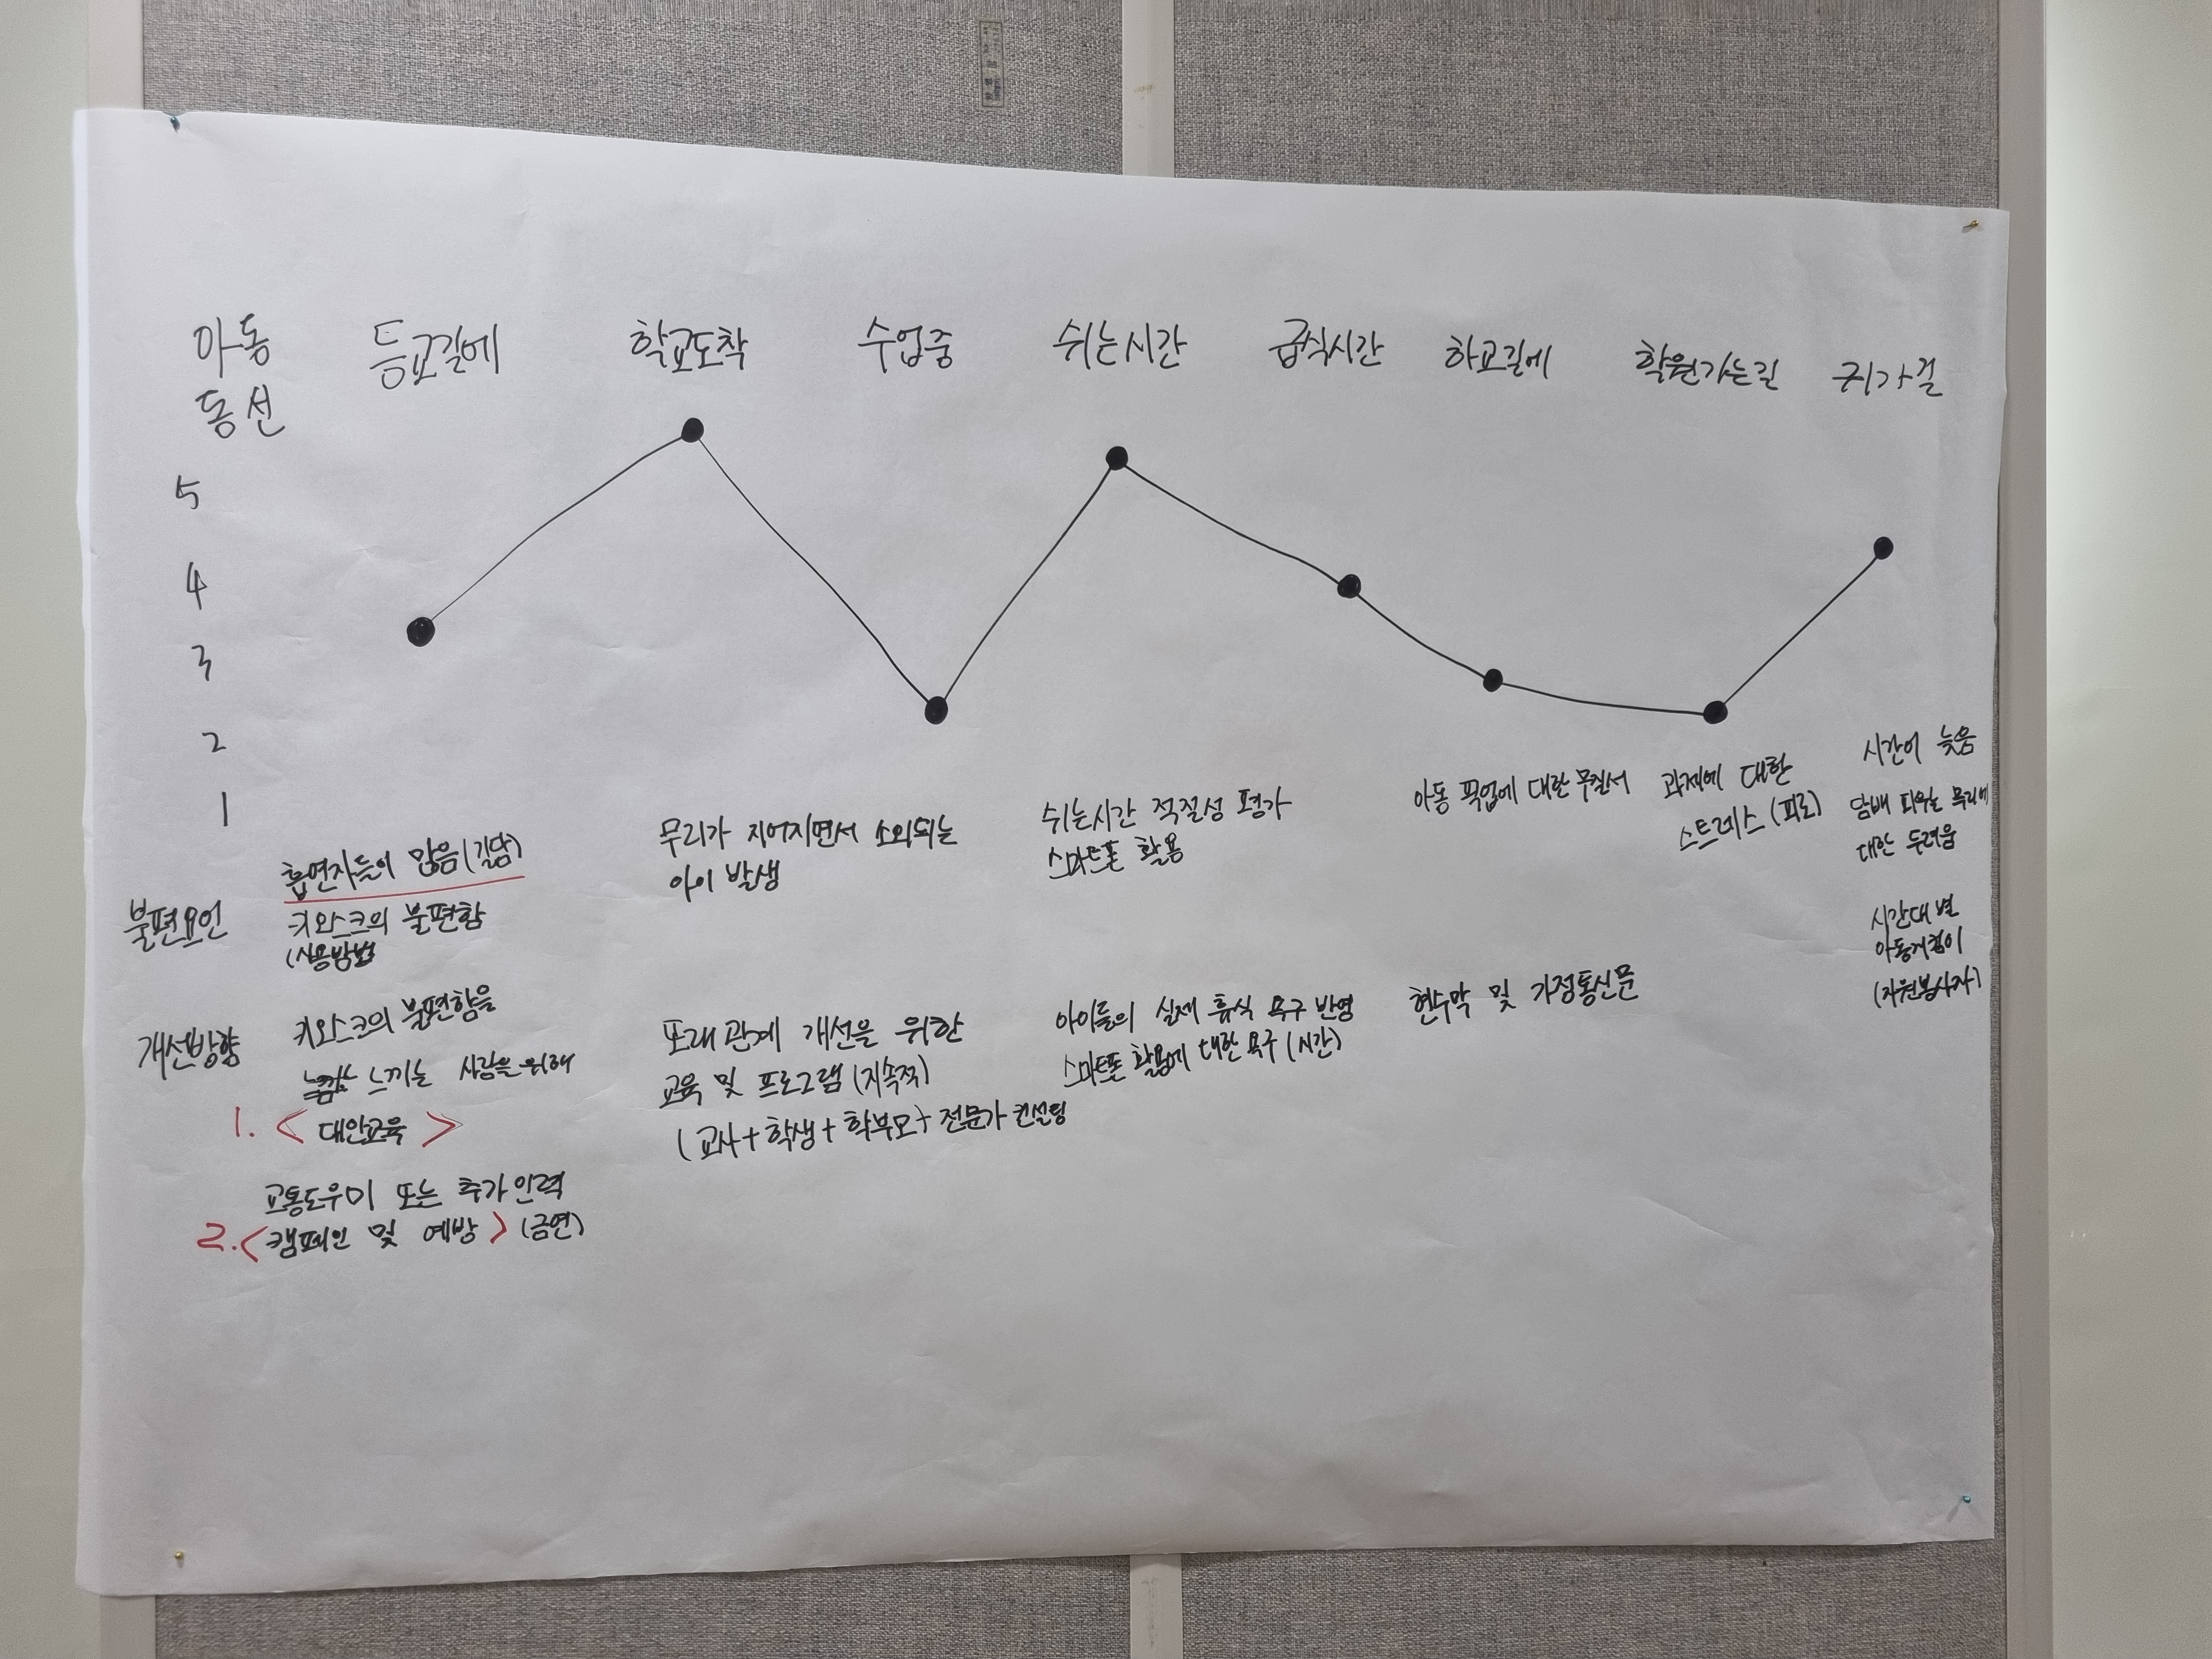 아동
동선
등교길에
학교도착
수업중
쉬는시간
급식시간
하교길에
학원가는길
귀가길
5
4
3
2
1
불편요인
흡연자들이 많음(길담)
키오스크의 불편함
(사용방법
무리가 지어지면서 소외되는
아이 발생
쉬는시간 적절성 평가
스마트폰 활용
아동 픽업에 대한 무질서
과제에 대한
스트레스 (피로)
시간이 늦음
담배 피우는 무리에
대한 두려움
개선방향
키오스크의 불편함을
느끼는 사람을 위해
1. < 대안교육 >
교통도우미 또는 추가인력
2. < 캠페인 및 예방 > (금연)
또래 관계 개선을 위한
교육 및 프로그램 (지속적)
(교사 + 학생 + 학부모 + 전문가 컨설팅
아이들의 실제 휴식 욕구 반영
스마트폰 활용에 대한 욕구 (시간)
현수막 및 가정통신문
시간대 별
아동지킴이
(자원봉사자)